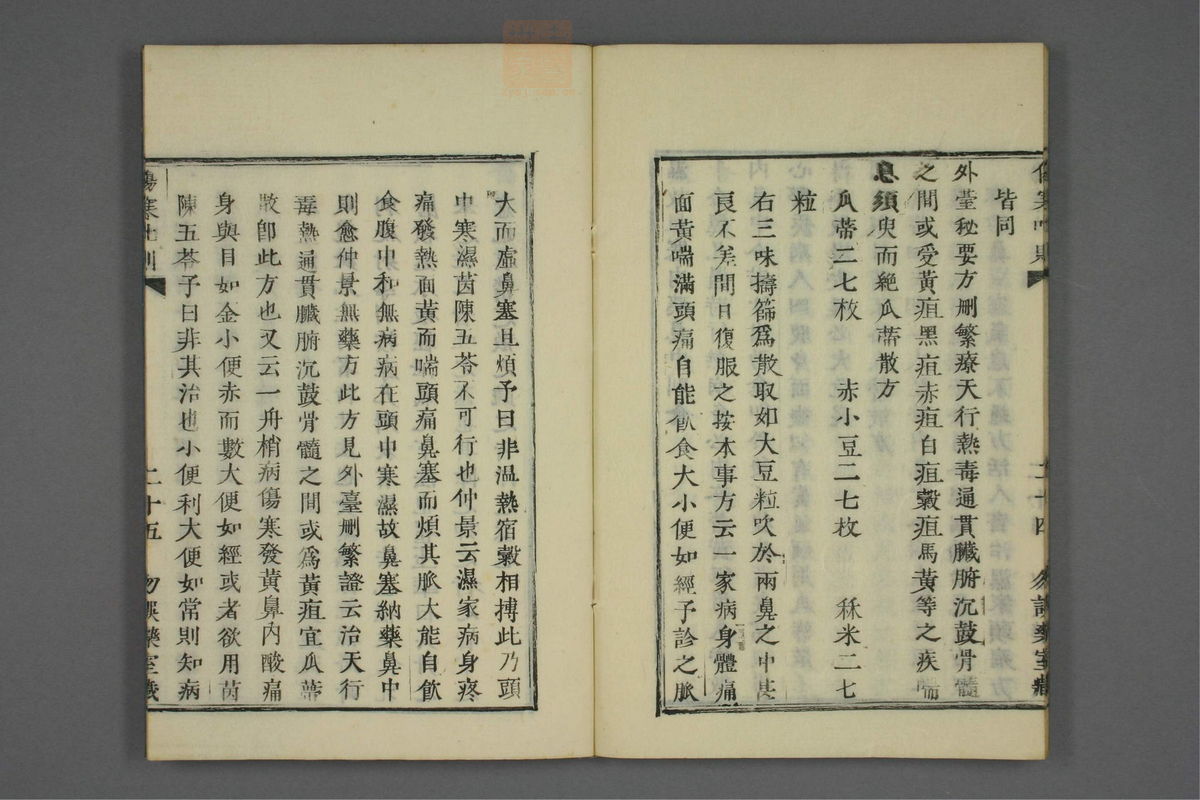 皆同
外臺秘要方刪繁療天行熱毒通貫臟腑沉鼓骨髓
之間或受黃疸黑疸赤疸白疸穀疸馬黃等之疾喘
息須臾而絶瓜蒂散方
瓜蒂二七枚　赤小豆二七枚　秫米二七
粒
右三味擣篩爲散取如大豆粒吹於兩鼻之中甚
良不差間日復服之按本事方云一家病身體痛
面黃喘滿頭痛自能飮食大小便如經予診之脈
二十四
大而虛鼻塞且煩予曰非温熱宿穀相搏此乃頭
中寒濕茵陳五苓不可行也仲景云濕家病身疼
痛發熱面黃而喘頭痛鼻塞而煩其脈大能自飮
食腹中和無病病在頭中寒濕故鼻塞納藥鼻中
則愈仲景無藥方此方見外臺刪繁證云治天行
毒熱通貫臟腑沉鼓骨髓之間或爲黃疸宜瓜蒂
散卽此方也又云一舟梢病傷寒發黃鼻內酸痛
身與目如金小便赤而數大便如經或者欲用茵
陳五苓予曰非其治也小便利大便如常則知病
二十五